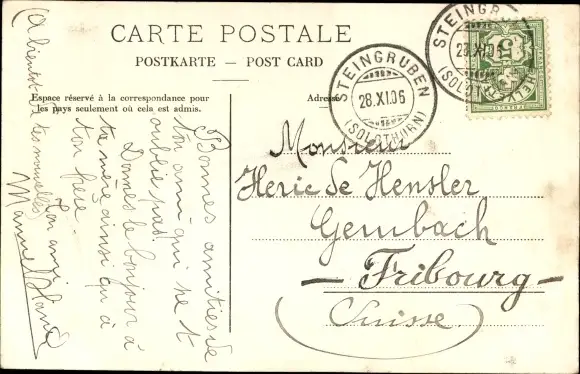 CARTE POSTALE
POSTKARTE — POST CARD
Espace réservé à la correspondance pour
les pays seulement où cela est admis.
Adresse
STEINGRUBEN
28.XI.06
(SOLOTHURN)
STEINGR
28.XI.06
(SOLOT
5
Monsieur
Herie de Hensler
Gembach
— Fribourg —
Suisse
Bonnes amitiés de
ton ami qui ne t'
oublie pas.
Donnes le bonjour à
ta mère ainsi qu'à
ton frère.
Ton ami
(A bientôt de tes nouvelles)